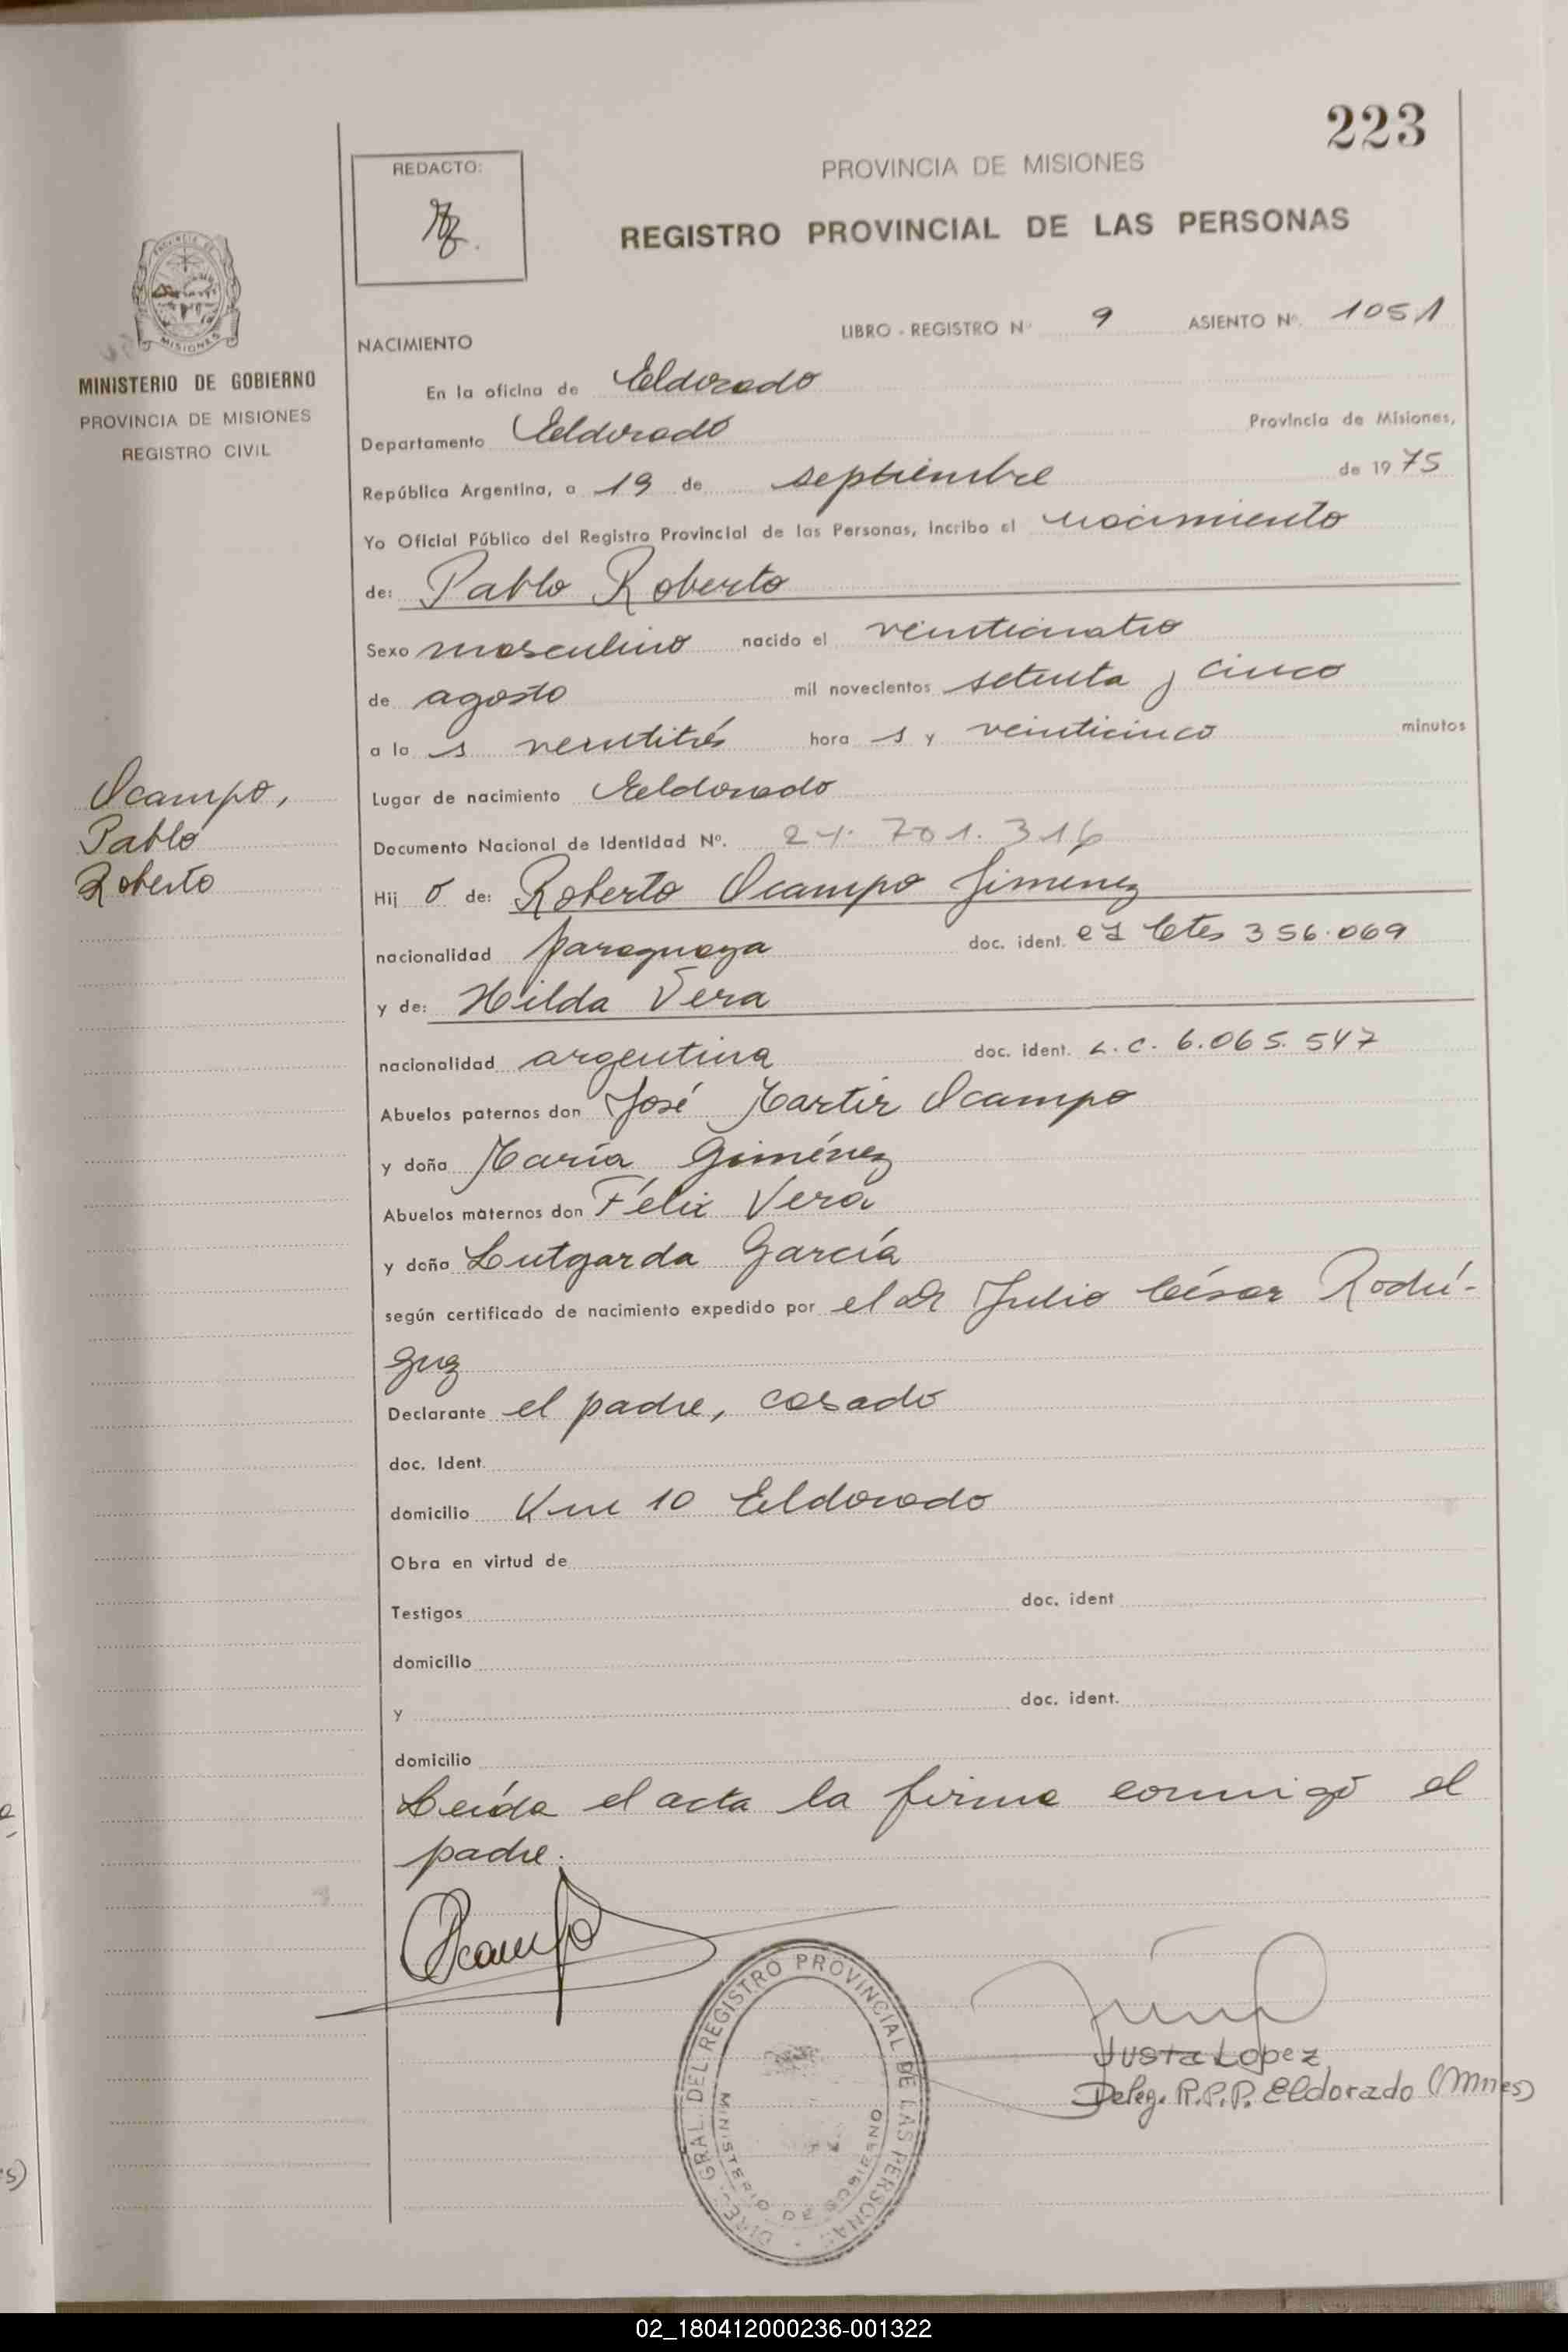 223
REDACTO:
PROVINCIA DE MISIONES
REGISTRO PROVINCIAL DE LAS PERSONAS
MISIONES
MINISTERIO DE GOBIERNO
PROVINCIA DE MISIONES
REGISTRO CIVIL
NACIMIENTO
LIBRO - REGISTRO Nº 9 ASIENTO Nº. 1051
En la oficina de Eldorado
Departamento Eldorado Provincia de Misiones,
República Argentina, a 19 de septiembre de 1975
Yo Oficial Público del Registro Provincial de las Personas, incribo el nacimiento
de: Pablo Roberto
Sexo masculino nacido el veinticuatro
de agosto mil novecientos setenta y cinco
a la s veintitrés hora s y veinticinco minutos
Ocampo,
Pablo
Roberto
Lugar de nacimiento Eldorado
Documento Nacional de Identidad Nº. 24.701.316
Hij o de: Roberto Ocampo Jimenez
nacionalidad paraguaya doc. ident. CI Ctes 356.069
y de: Hilda Vera
nacionalidad argentina doc. ident. L.C. 6.065.547
Abuelos paternos don José Martir Ocampo
y doña María Giménez
Abuelos maternos don Félix Vera
y doña Lutgarda García
según certificado de nacimiento expedido por el Dr Julio César Rodrí-
guez
Declarante el padre, casado
doc. Ident.
domicilio Km 10 Eldorado
Obra en virtud de
Testigos doc. ident
domicilio
y doc. ident.
domicilio
Leída el acta la firma conmigo el
padre.
Ocampo
DIREC. GRAL. DEL REGISTRO PROVINCIAL DE LAS PERSONAS
MINISTERIO DE GOBIERNO
Justa Lopez
Deleg. R.P.P. Eldorado (Mnes)
02_180412000236-001322